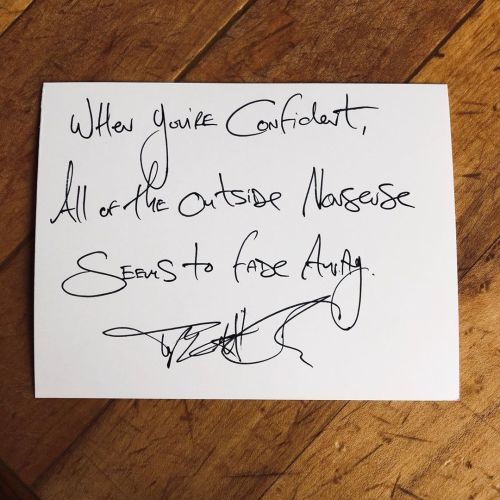 When you're confident,
All of the outside nonsense
Seems to fade away.